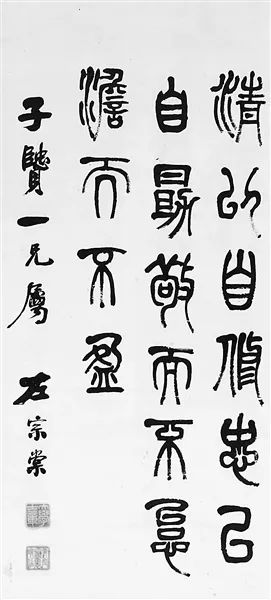 清以自修忠以
自勗敬而不怠
澹而不盈
子賢一兄屬 左宗棠